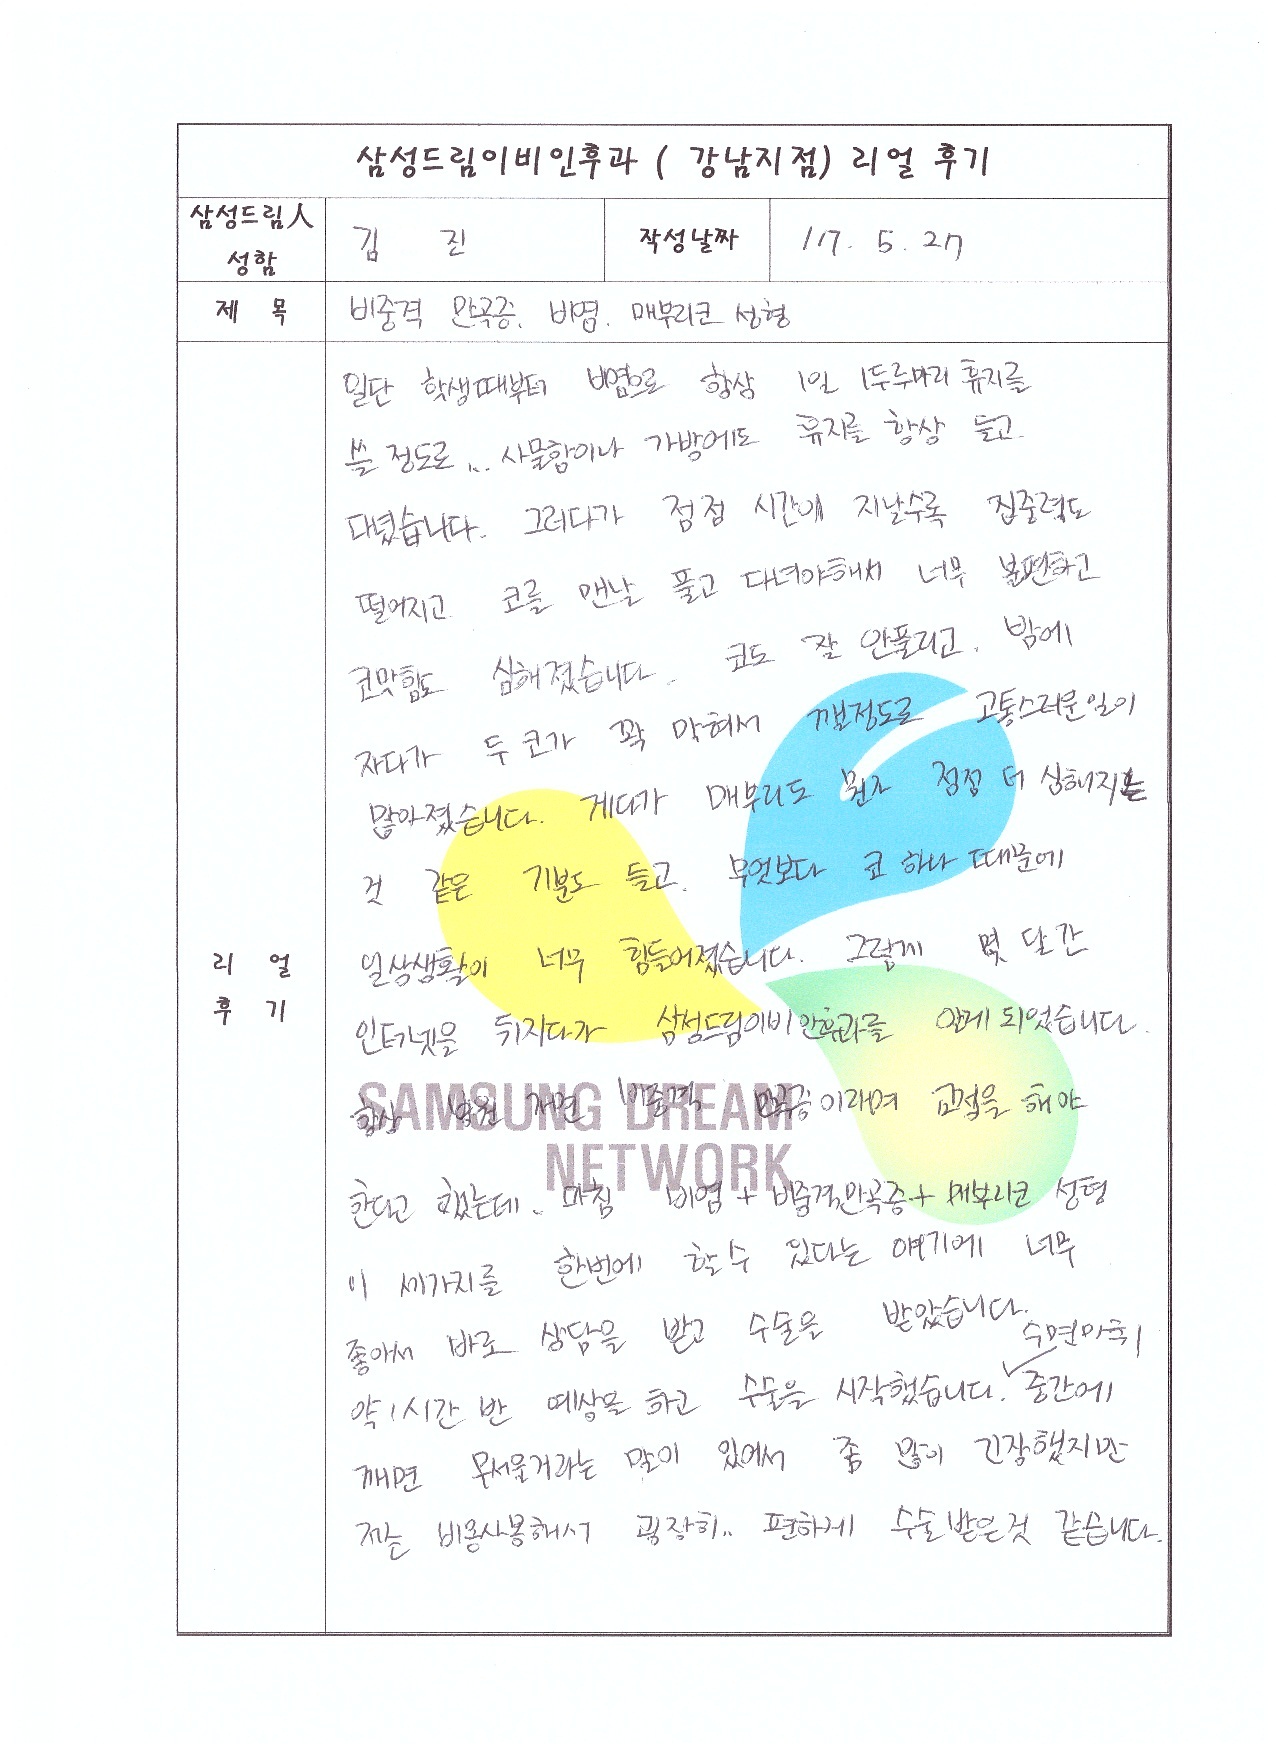 삼성드림이비인후과 ( 강남지점) 리얼 후기
삼성드림人 성함
김 진
작성날짜
117. 5. 27
제 목
비중격 만곡증. 비염. 매부리코 성형
리 얼
후 기
일단 학생때부터 비염으로 항상 1일 1두루마리 휴지를
쓸 정도로... 사물함이나 가방에도 휴지를 항상 들고
다녔습니다. 그러다가 점점 시간이 지날수록 집중력도
떨어지고 코를 맨날 풀고 다녀야해서 너무 불편하고
코막힘도 심해졌습니다. 코도 잘 안풀리고. 밤에
자다가 두 코가 꽉 막혀서 깰정도로 고통스러운일이
많아졌습니다. 게다가 매부리도 뭔가 점점 더 심해지는
것 같은 기분도 들고. 무엇보다 코 하나 때문에
일상생활이 너무 힘들어졌습니다. 그렇게 몇 달간
인터넷을 뒤지다가 삼성드림이비인후과를 알게 되었습니다.
항상 병원 가면 비중격 만곡증이라며 교정을 해야
SAMSUNG DREAM
NETWORK
한다고 했는데.. 마침 비염 + 비중격만곡증 + 매부리코 성형
이 세가지를 한번에 할수 있다는 얘기에 너무
좋아서 바로 상담을 받고 수술을 받았습니다.
수면마취
약 1시간 반 예상을 하고 수술을 시작했습니다. 중간에
깨면 무서울거라는 말이 있어서 좀 많이 긴장했지만
저는 비용사용해서 굉장히.. 편하게 수술받은것 같습니다.